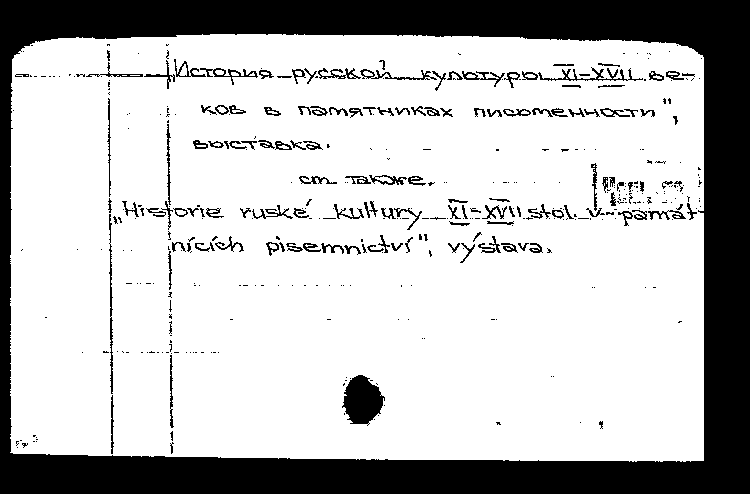 „История русской культуры XI-XVII ве-
ков в памятниках письменности",
выставка.
см. также.
„Historie ruské kultury XI-XVII stol. v památ-
nících písemnictví", výstava.